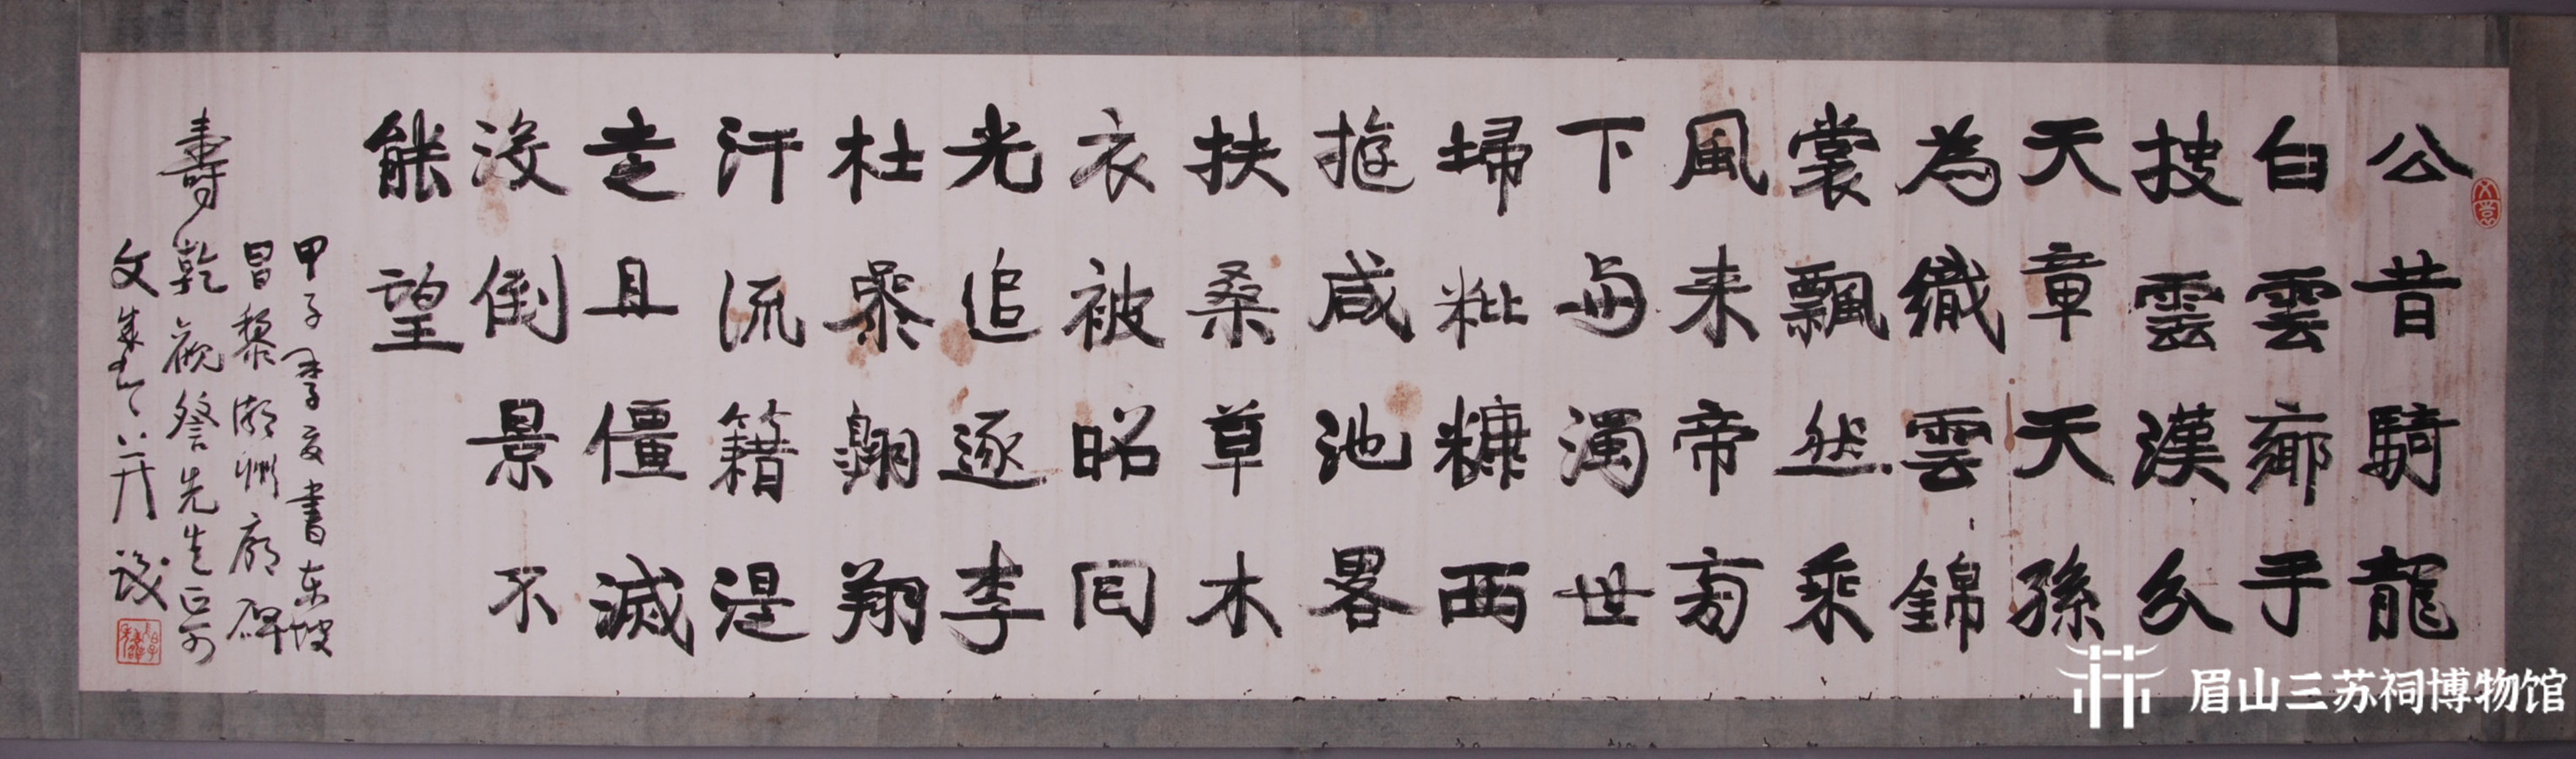 公昔騎龍
白雲鄉手
披雲漢分
天章天孫
為織雲錦
裳飄然乘
風来帝旁
下与濁世
掃粃糠西
遊咸池畧
扶桑草木
衣被昭回
光追逐李
杜參翱翔
汗流籍湜
走且僵滅
沒倒景不
能望
甲子季夏書東坡
昌黎潮州廟碑
壽乾觀詧先生正
文并識
眉山三苏祠博物馆